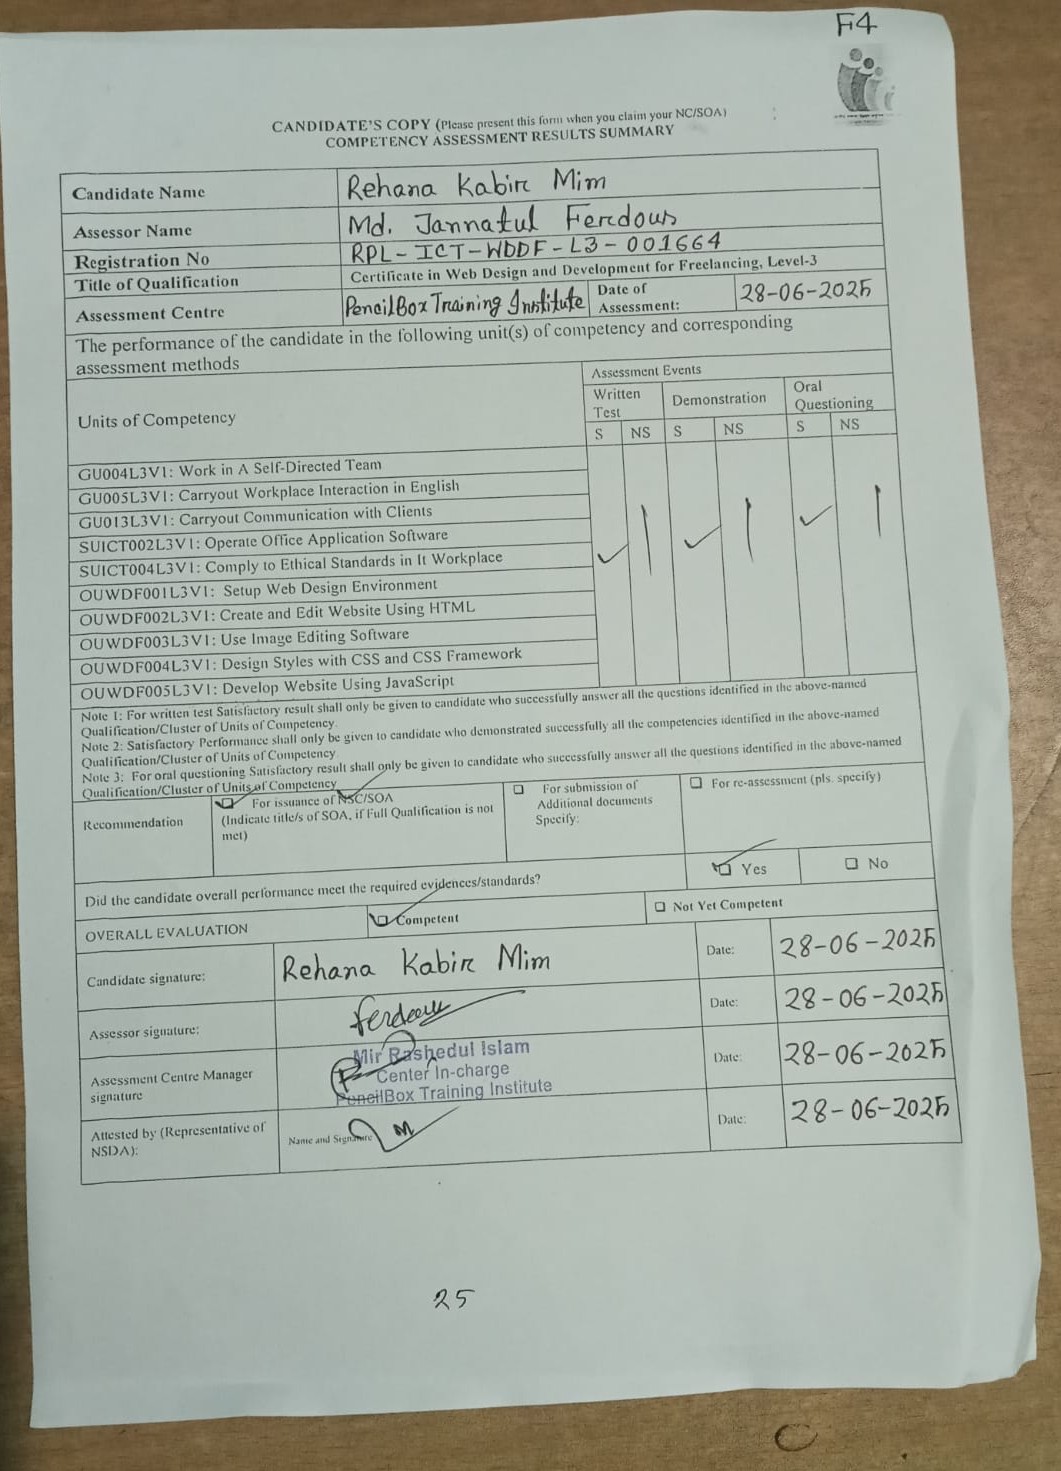 F4
CANDIDATE'S COPY (Please present this form when you claim your NC/SOA)
COMPETENCY ASSESSMENT RESULTS SUMMARY
Candidate Name Rehana Kabir Mim
Assessor Name Md. Jannatul Ferdous
Registration No RPL-ICT-WDDF-L3-001664
Title of Qualification Certificate in Web Design and Development for Freelancing, Level-3
Assessment Centre PencilBox Training Institute Date of Assessment: 28-06-2025
The performance of the candidate in the following unit(s) of competency and corresponding
assessment methods
Units of Competency Assessment Events
Written Test Demonstration Oral Questioning
S NS S NS S NS
GU004L3V1: Work in A Self-Directed Team
GU005L3V1: Carryout Workplace Interaction in English
GU013L3V1: Carryout Communication with Clients
SUICT002L3V1: Operate Office Application Software
SUICT004L3V1: Comply to Ethical Standards in It Workplace
OUWDF001L3V1: Setup Web Design Environment
OUWDF002L3V1: Create and Edit Website Using HTML
OUWDF003L3V1: Use Image Editing Software
OUWDF004L3V1: Design Styles with CSS and CSS Framework
OUWDF005L3V1: Develop Website Using JavaScript
Note 1: For written test Satisfactory result shall only be given to candidate who successfully answer all the questions identified in the above-named
Qualification/Cluster of Units of Competency.
Note 2: Satisfactory Performance shall only be given to candidate who demonstrated successfully all the competencies identified in the above-named
Qualification/Cluster of Units of Competency.
Note 3: For oral questioning Satisfactory result shall only be given to candidate who successfully answer all the questions identified in the above-named
Qualification/Cluster of Units of Competency
Recommendation
For issuance of NSC/SOA
(Indicate title/s of SOA, if Full Qualification is not
met)
For submission of
Additional documents
Specify:
For re-assessment (pls. specify)
Did the candidate overall performance meet the required evidences/standards? Yes No
OVERALL EVALUATION Competent Not Yet Competent
Candidate signature: Rehana Kabir Mim Date: 28-06-2025
Assessor signature: Date: 28-06-2025
Assessment Centre Manager
signature
Mir Rashedul Islam
Center In-charge
PencilBox Training Institute
Date: 28-06-2025
Attested by (Representative of
NSDA):
Name and Signature
Date: 28-06-2025
25